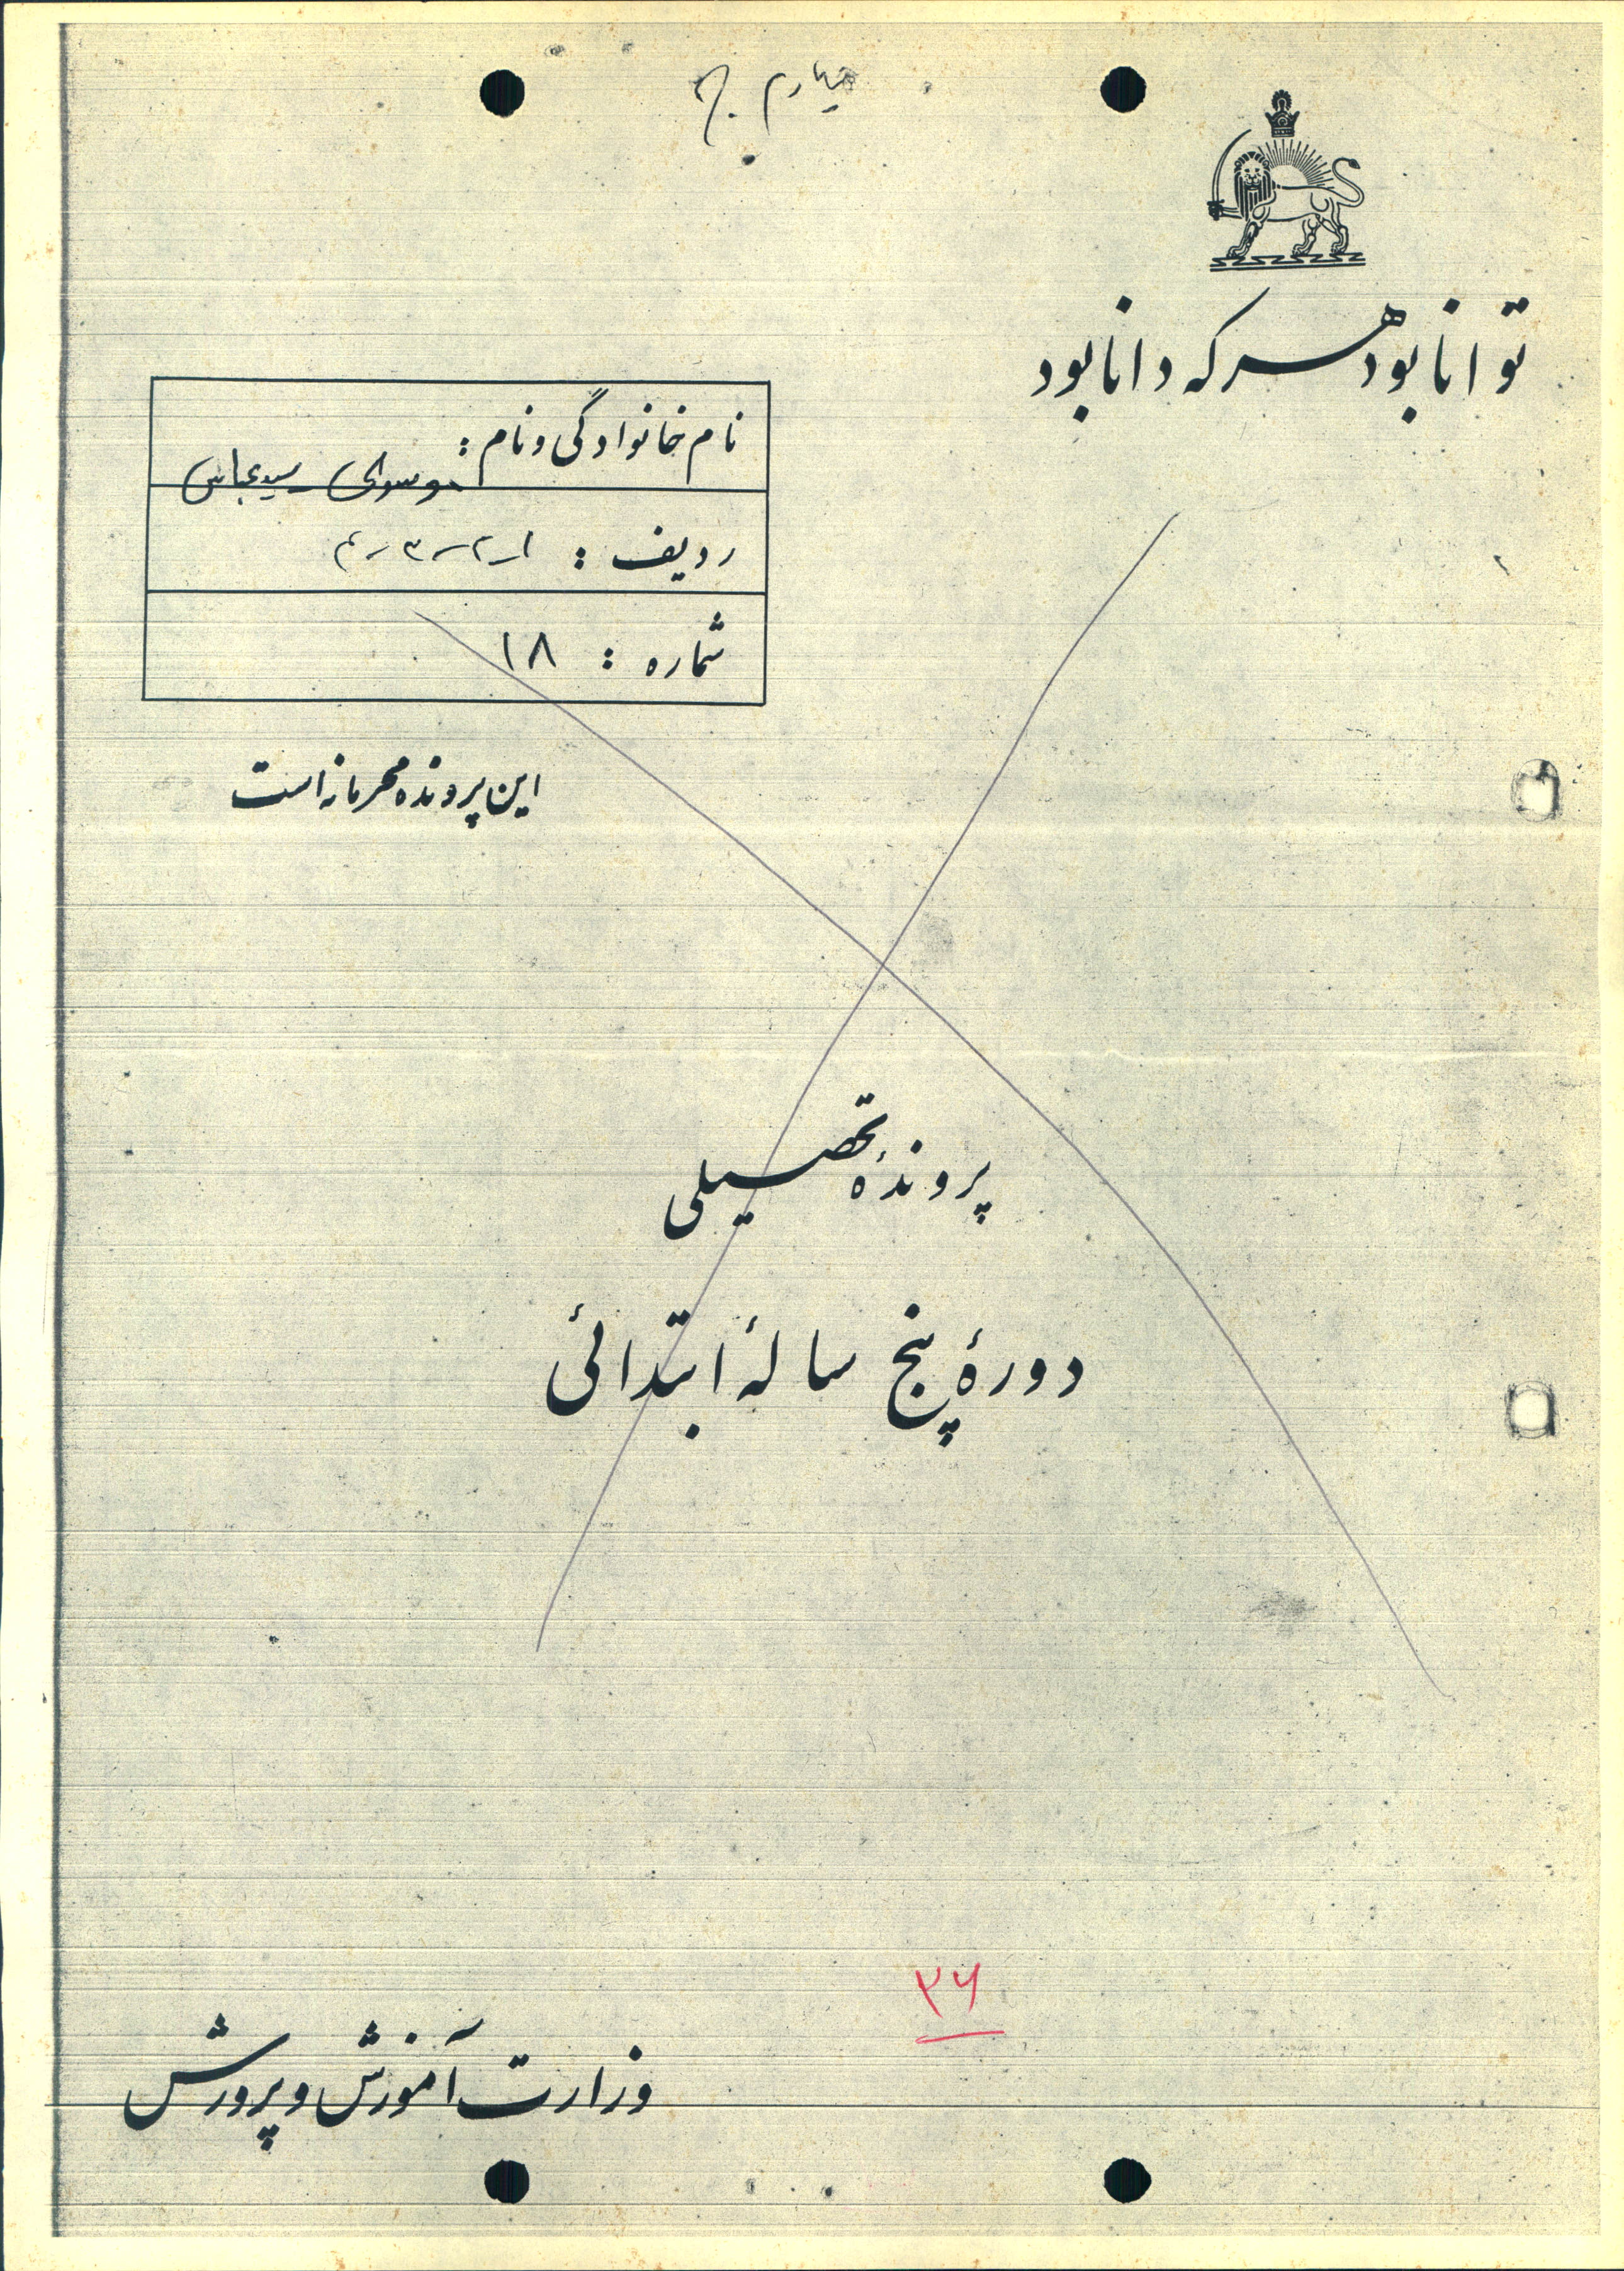 چهارم ج
توانا بود هر که دانا بود
نام خانوادگی و نام : موسوی سیدعباس
ردیف : ۱-۲-۳-۴
شماره : ۱۸
این پرونده محرمانه است
پروندهٔ تحصیلی
دورهٔ پنج سالهٔ ابتدائی
۳۶
وزارت آموزش و پرورش